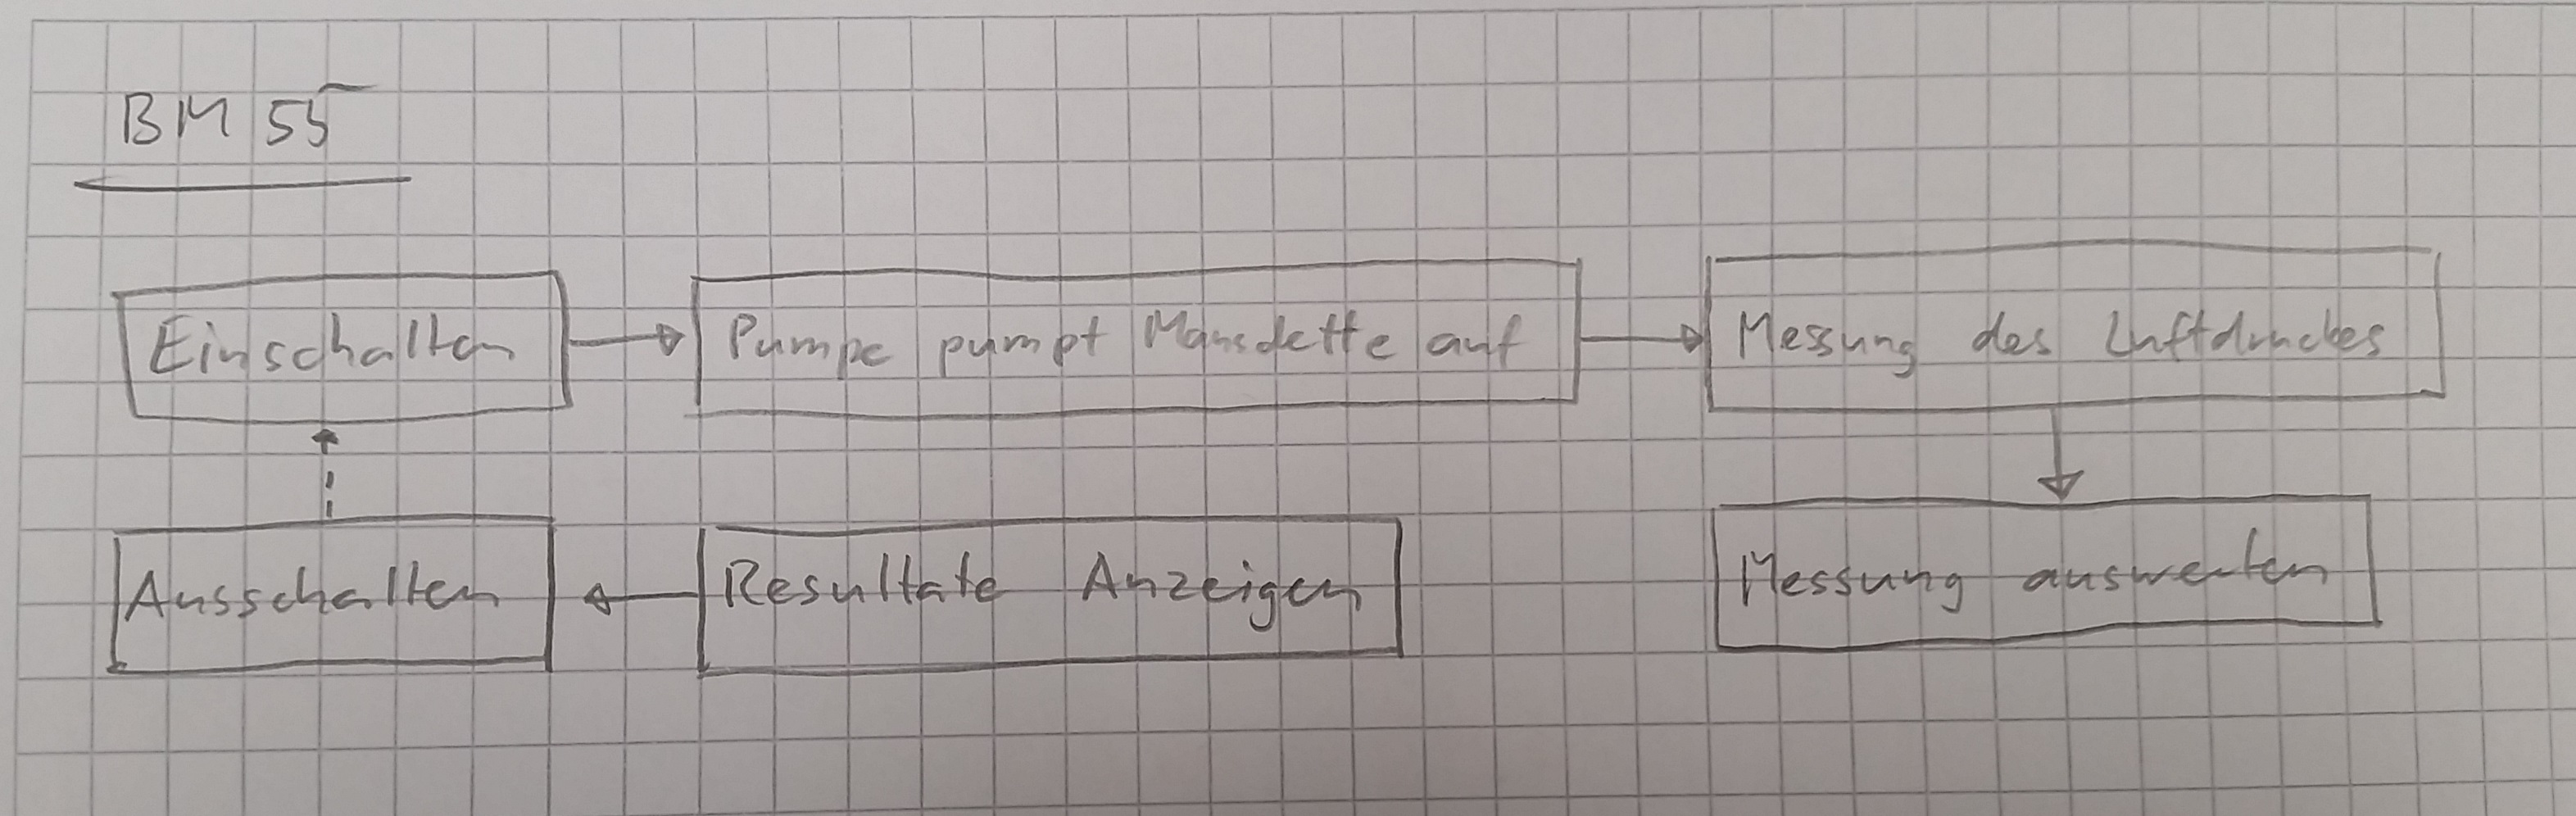 BM 55
Einschalten
Pumpe pumpt Manschette auf
Messung des Luftdruckes
Ausschalten
Resultate Anzeigen
Messung auswerten